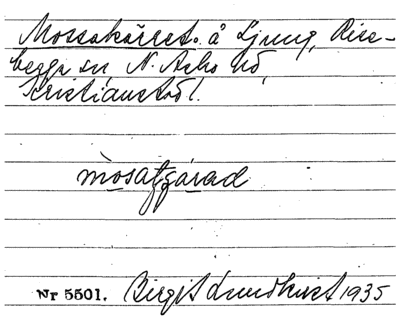 Mossakärret. å Ljung, Rise-
berga sn, N. Asbo hd,
Kristianst. l.
mosatzárad
Nr 5501. Birgit Lundkvist 1935